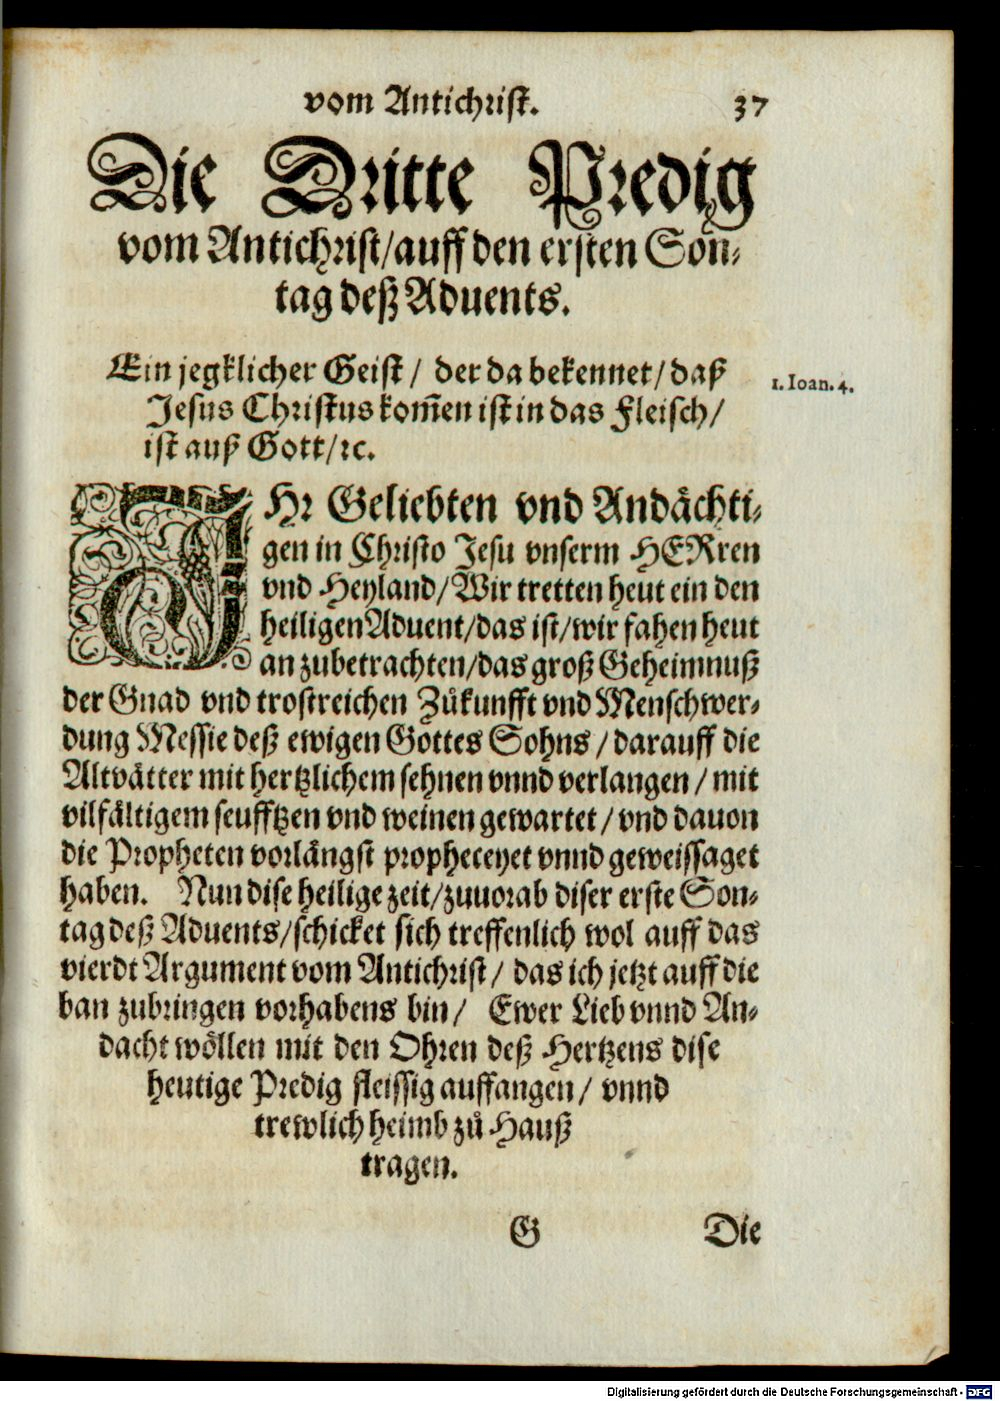 vom Antichrist. 37
Die Dritte Predig
vom Antichrist/auff den ersten Son-
tag deß Aduents.
Ein jegklicher Geist/ der da bekennet/daß
Jesus Christus kom̃en ist in das Fleisch/
ist auß Gott/ꝛc.
1. Ioan. 4.
IHr Geliebten vnd Andächti-
gen in Christo Jesu vnserm HERren
vnd Heyland/Wir tretten heut ein den
heiligen Aduent/das ist/wir fahen heut
an zubetrachten/das groß Geheimnuß
der Gnad vnd trostreichen Zůkunfft vnd Menschwer-
dung Messie deß ewigen Gottes Sohns/darauff die
Altvätter mit hertzlichem sehnen vnnd verlangen/mit
vilfältigem seufftzen vnd weinen gewartet/vnd dauon
die Propheten vorlängst propheceyet vnnd geweissaget
haben. Nun dise heilige zeit/zuuorab diser erste Son-
tag deß Aduents/schicket sich treffenlich wol auff das
vierdt Argument vom Antichrist/ das ich jetzt auff die
ban zubringen vorhabens bin/ Ewer Lieb vnnd An-
dacht wöllen mit den Ohren deß Hertzens dise
heutige Predig fleissig auffangen/ vnnd
trewlich heimb zů Hauß
tragen.
G Die
Digitalisierung gefördert durch die Deutsche Forschungsgemeinschaft - DFG